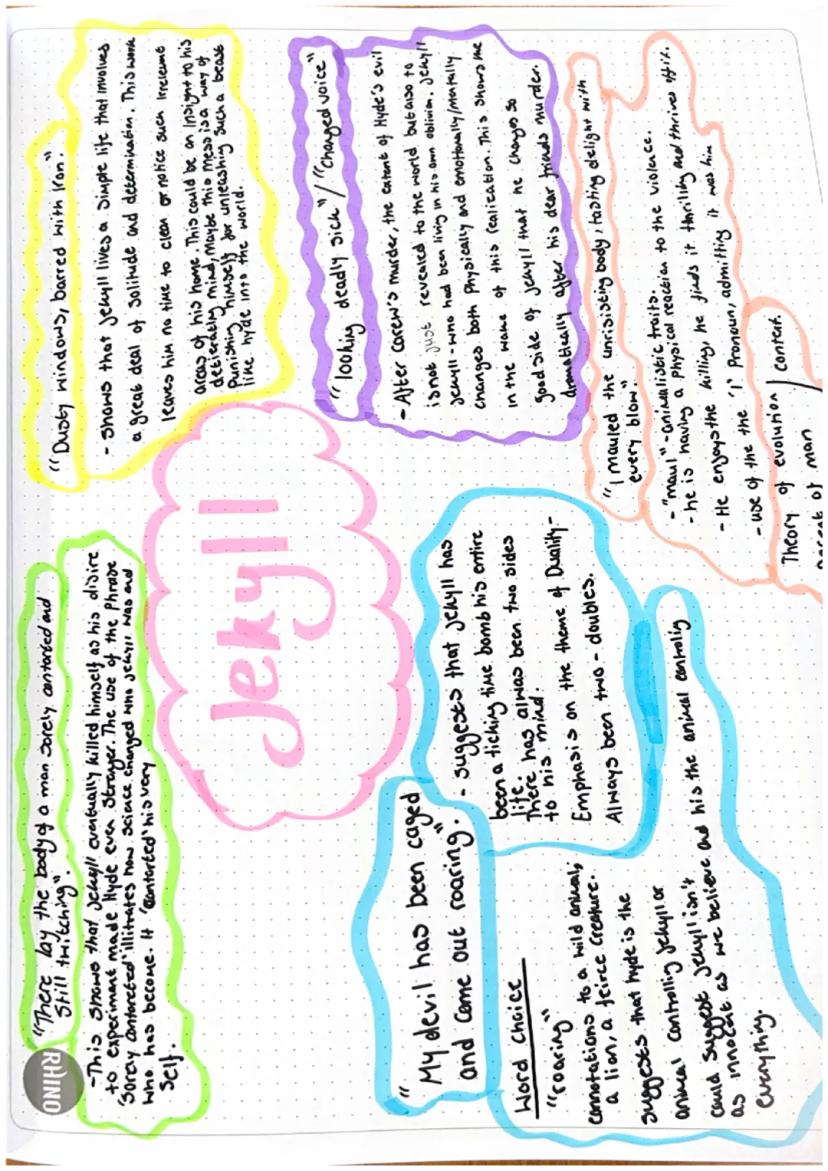 RHINO
"There lay the body of a man sorely contorted and
still twitching"
-This shows that Jekyll eventually killed himself as his disire
to experimant made Hyde even stronger. The use of the Phrase
'sorely contorted' illitrates how science changed who Jekyll was and
who has become. It 'contorted' his very
self.
"Dusty windows, barred with Iron".
- shows that Jekyll lives a simple life that involves
a great deal of solitude and determination. This work
leaves him no time to clean or notice such irrelevant
areas of his home. This could be an insight to his
deterierating mind, Maybe this mess is a way of
Punishing himself for unleashing such a beast
like hyde into the world.
Jekyll
"looking deadly sick" / "Changed voice"
- After Carew's murder, the extent of Hyde's evil
is not just revealed to the world but also to
Jekyll - who had been living in his own oblivion. Jekyll
changes both Physically and emotionally/mentally
in the wake of this realization. This shows the
good side of Jekyll that he changes so
dramatically after his dear friends murder.
"My devil has been caged
and came out roaring".
- suggests that Jekyll has
been a ticking time bomb his entire
life.
There has always been two sides
to his mind.
Emphasis on the theme of Duality -
Always been two - doubles.
Word choice
"roaring"
connotations to a wild animal,
a lion, a feirce creature.
suggests that hyde is the
animal controlling Jekyll or
could suggest Jekyll isn't
as innocent as we believe and his the animal controlig
everything.
"I mauled the unrisisting body, tasting delight with
every blow".
- "maul" - animalistic traits.
- he is having a Physical reaction to the violence.
- He enjoys the killing, he finds it thrilling and thrives off it.
- use of the the 'I' Pronoun, admitting it was him
Theory of evolution / context.
of man